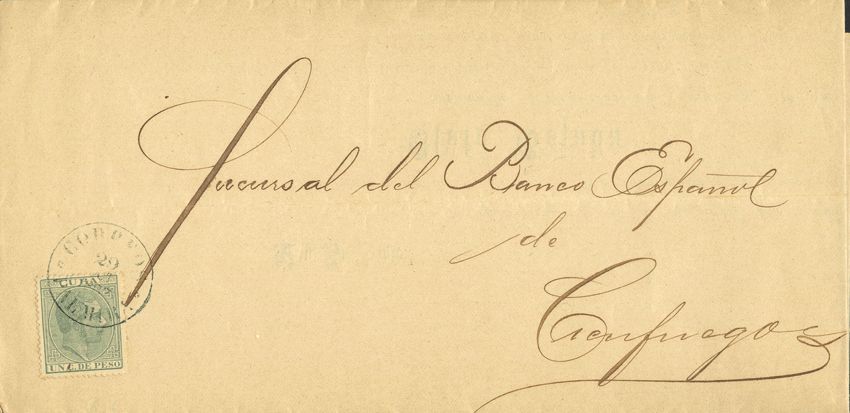 Sucursal del Banco Español
de
Cienfuegos
CORREOS
29
CUBA
UN C. DE PESO